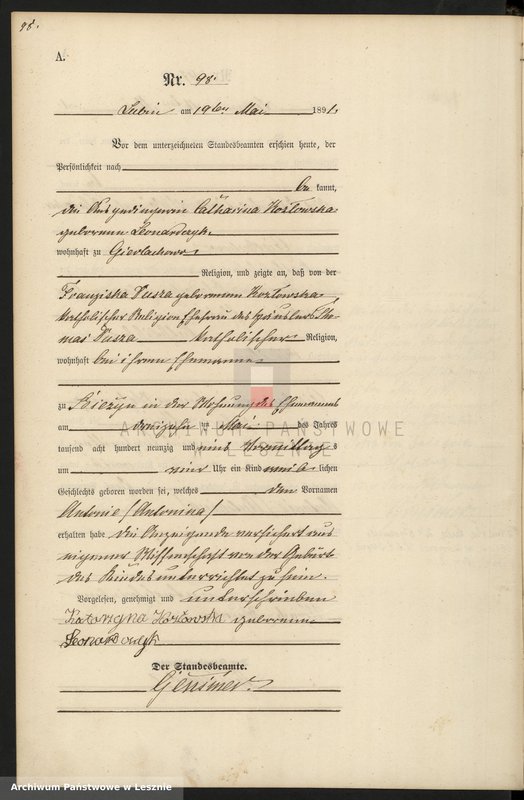 98.
A.
Nr. 98.
Lubin am 19ten Mai 1891.
Vor dem unterzeichneten Standesbeamten erschien heute, der
Persönlichkeit nach
be kannt,
die Ausgedingerin Catharina Kozlowska
geborenen Leonardczyk,
wohnhaft zu Gierlachowo
Religion, und zeigte an, daß von der
Franziska Dusza geborenen Kozlowska,
katholischer Religion Ehefrau des Häuslers Tho-
mas Dusza katholischer Religion,
wohnhaft bei ihrem Ehemanne
zu Bieżyn in der Wohnung des Ehemannes
am dreizehn ten Mai des Jahres
tausend acht hundert neunzig und eins Vormittag s
um vier Uhr ein Kind weib lichen
Geschlechts geboren worden sei, welches den Vornamen
Antonie /Antonina/
erhalten habe. Die Anzeigende versichert aus
eigener Wissenschaft von der Geburt
des Kindes unterrichtet zu sein.
Vorgelesen, genehmigt und unterschrieben
Katarzyna Kozłowska geborene
Leonardczyk
Der Standesbeamte.
ARCHIWUM PAŃSTWOWE
W LESZNIE
Archiwum Państwowe w Lesznie